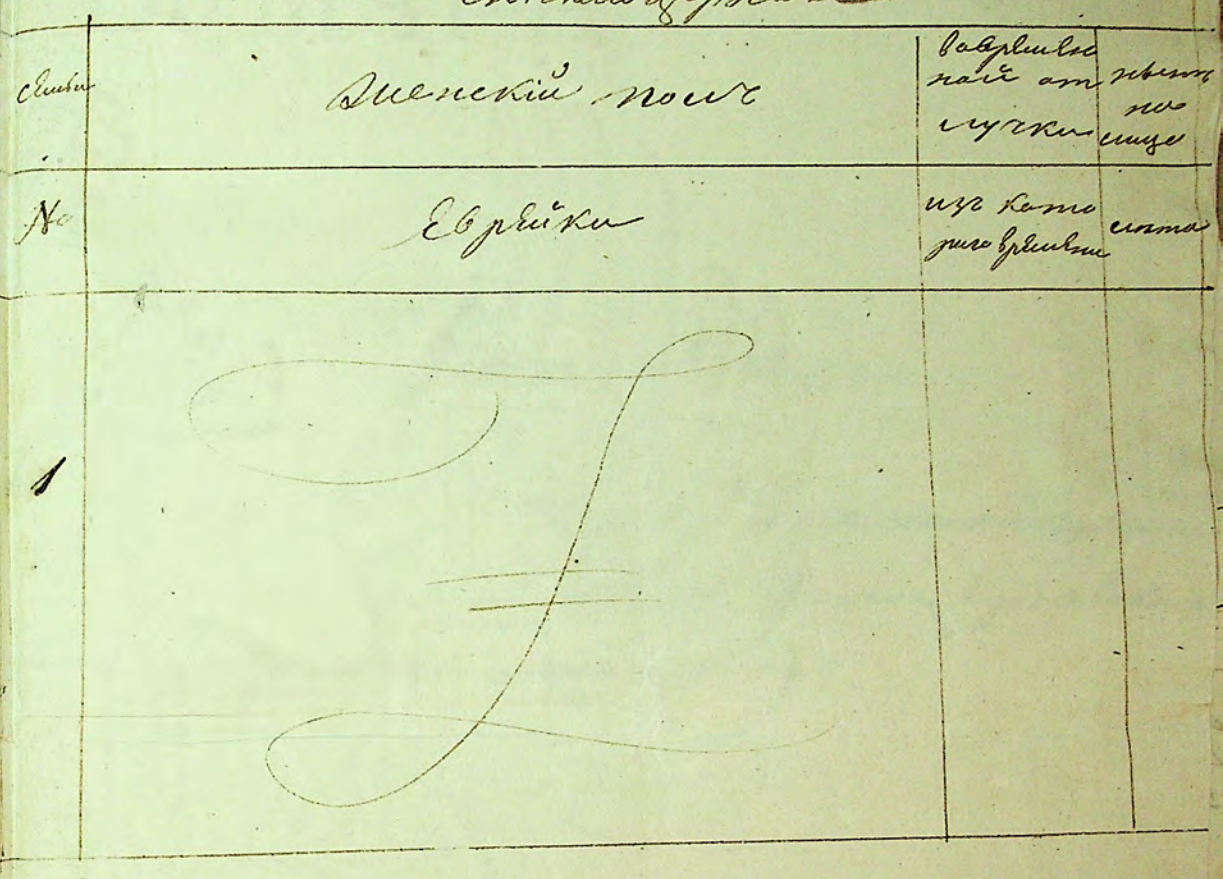 семьи
Женскій полъ
во времен
ной от
лучки
нынѣ
на
лицо
№
Еврейки
изъ кото
раго времени
лѣта
1